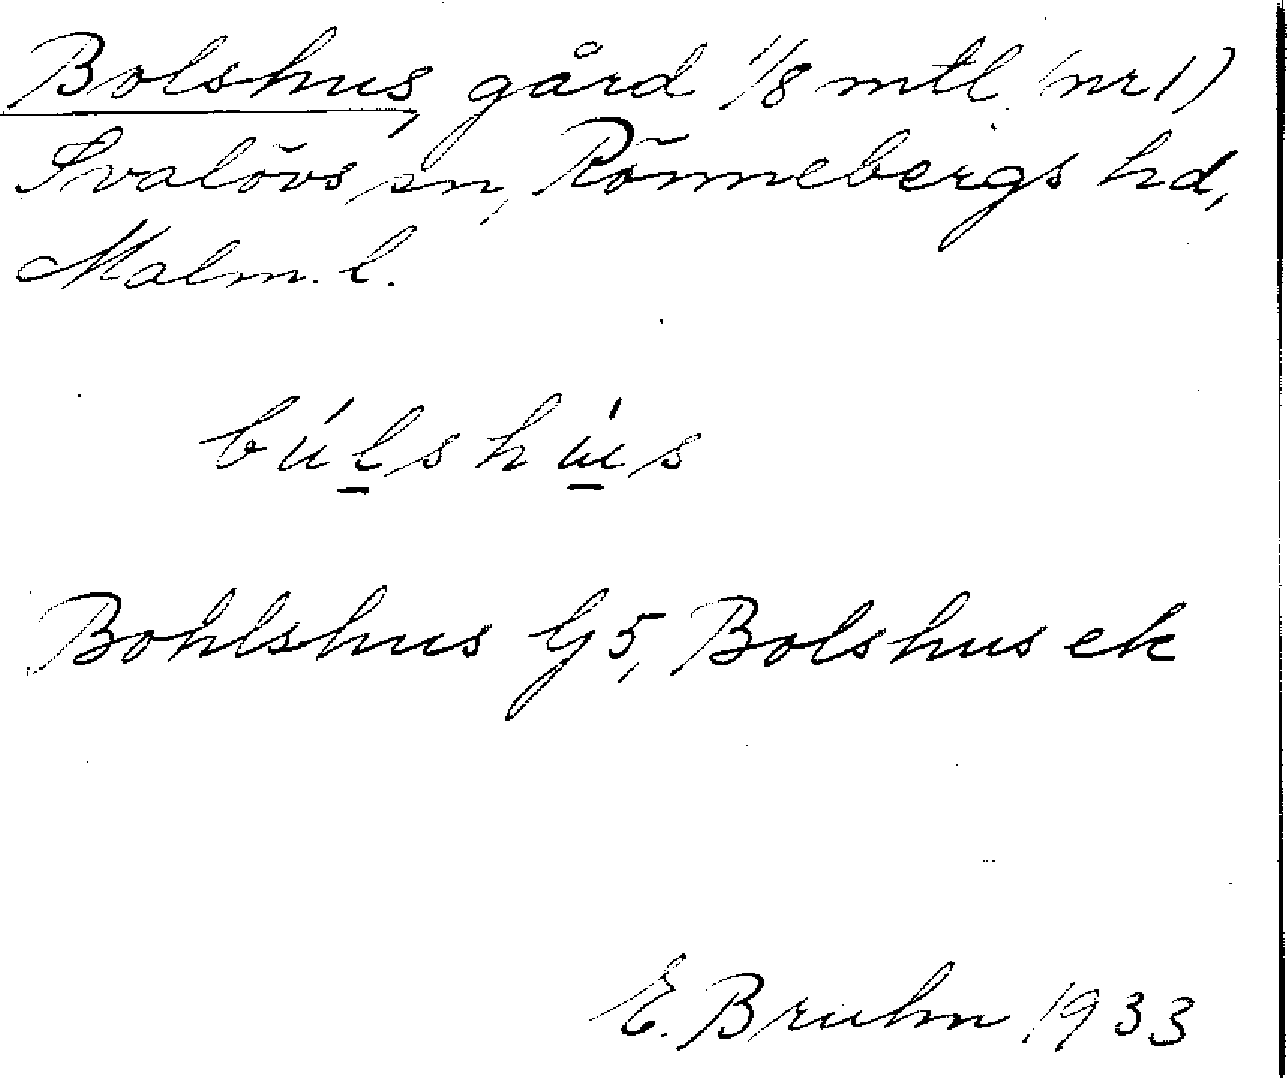 Bolshus, gård 1/8 mtl. (nr 1)
Svalövs sn, Rönnebergs hd,
Malm. l.
búlshús
Bohlshus Gj 5, Bolshus ek
E. Bruhn 1933